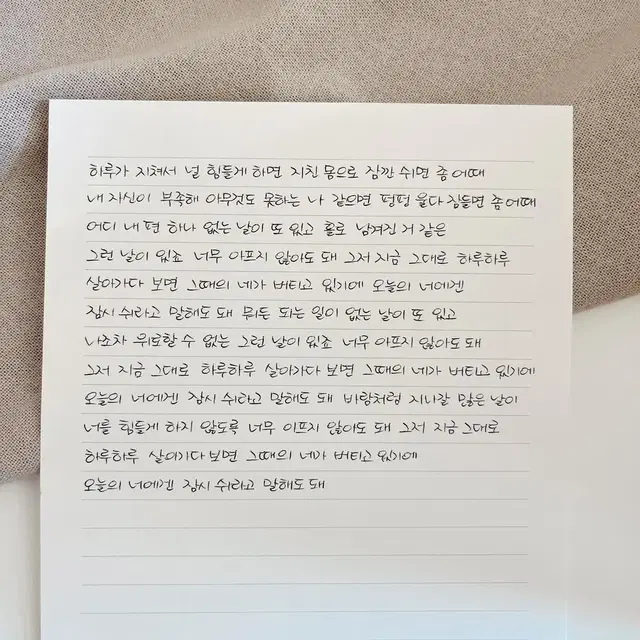 하루가 지쳐서 널 힘들게 하면 지친 몸으로 잠깐 쉬면 좀 어때
내 자신이 부족해 아무것도 못하는 나 같으면 펑펑 울다 잠들면 좀 어때
어디 내 편 하나 없는 날이 또 있고 홀로 남겨진 거 같은
그런 날이 있죠 너무 아프지 않아도 돼 그저 지금 그대로 하루하루
살아가다 보면 그때의 네가 버티고 있기에 오늘의 너에겐
잠시 쉬라고 말해도 돼 뭐든 되는 일이 없는 날이 또 있고
나조차 위로할 수 없는 그런 날이 있죠 너무 아프지 않아도 돼
그저 지금 그대로 하루하루 살아가다 보면 그때의 네가 버티고 있기에
오늘의 너에겐 잠시 쉬라고 말해도 돼 바람처럼 지나갈 많은 날이
너를 힘들게 하지 않도록 너무 아프지 않아도 돼 그저 지금 그대로
하루하루 살아가다 보면 그때의 네가 버티고 있기에
오늘의 너에겐 잠시 쉬라고 말해도 돼